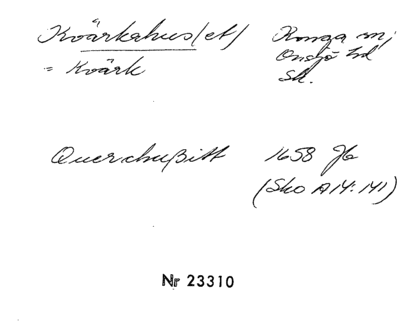 Kvärkahus(et) Konga m;
= Kvärk Onsjö hd
Sk.
Querchußitt 1658 Jb
(Sko A14:141)
Nr 23310